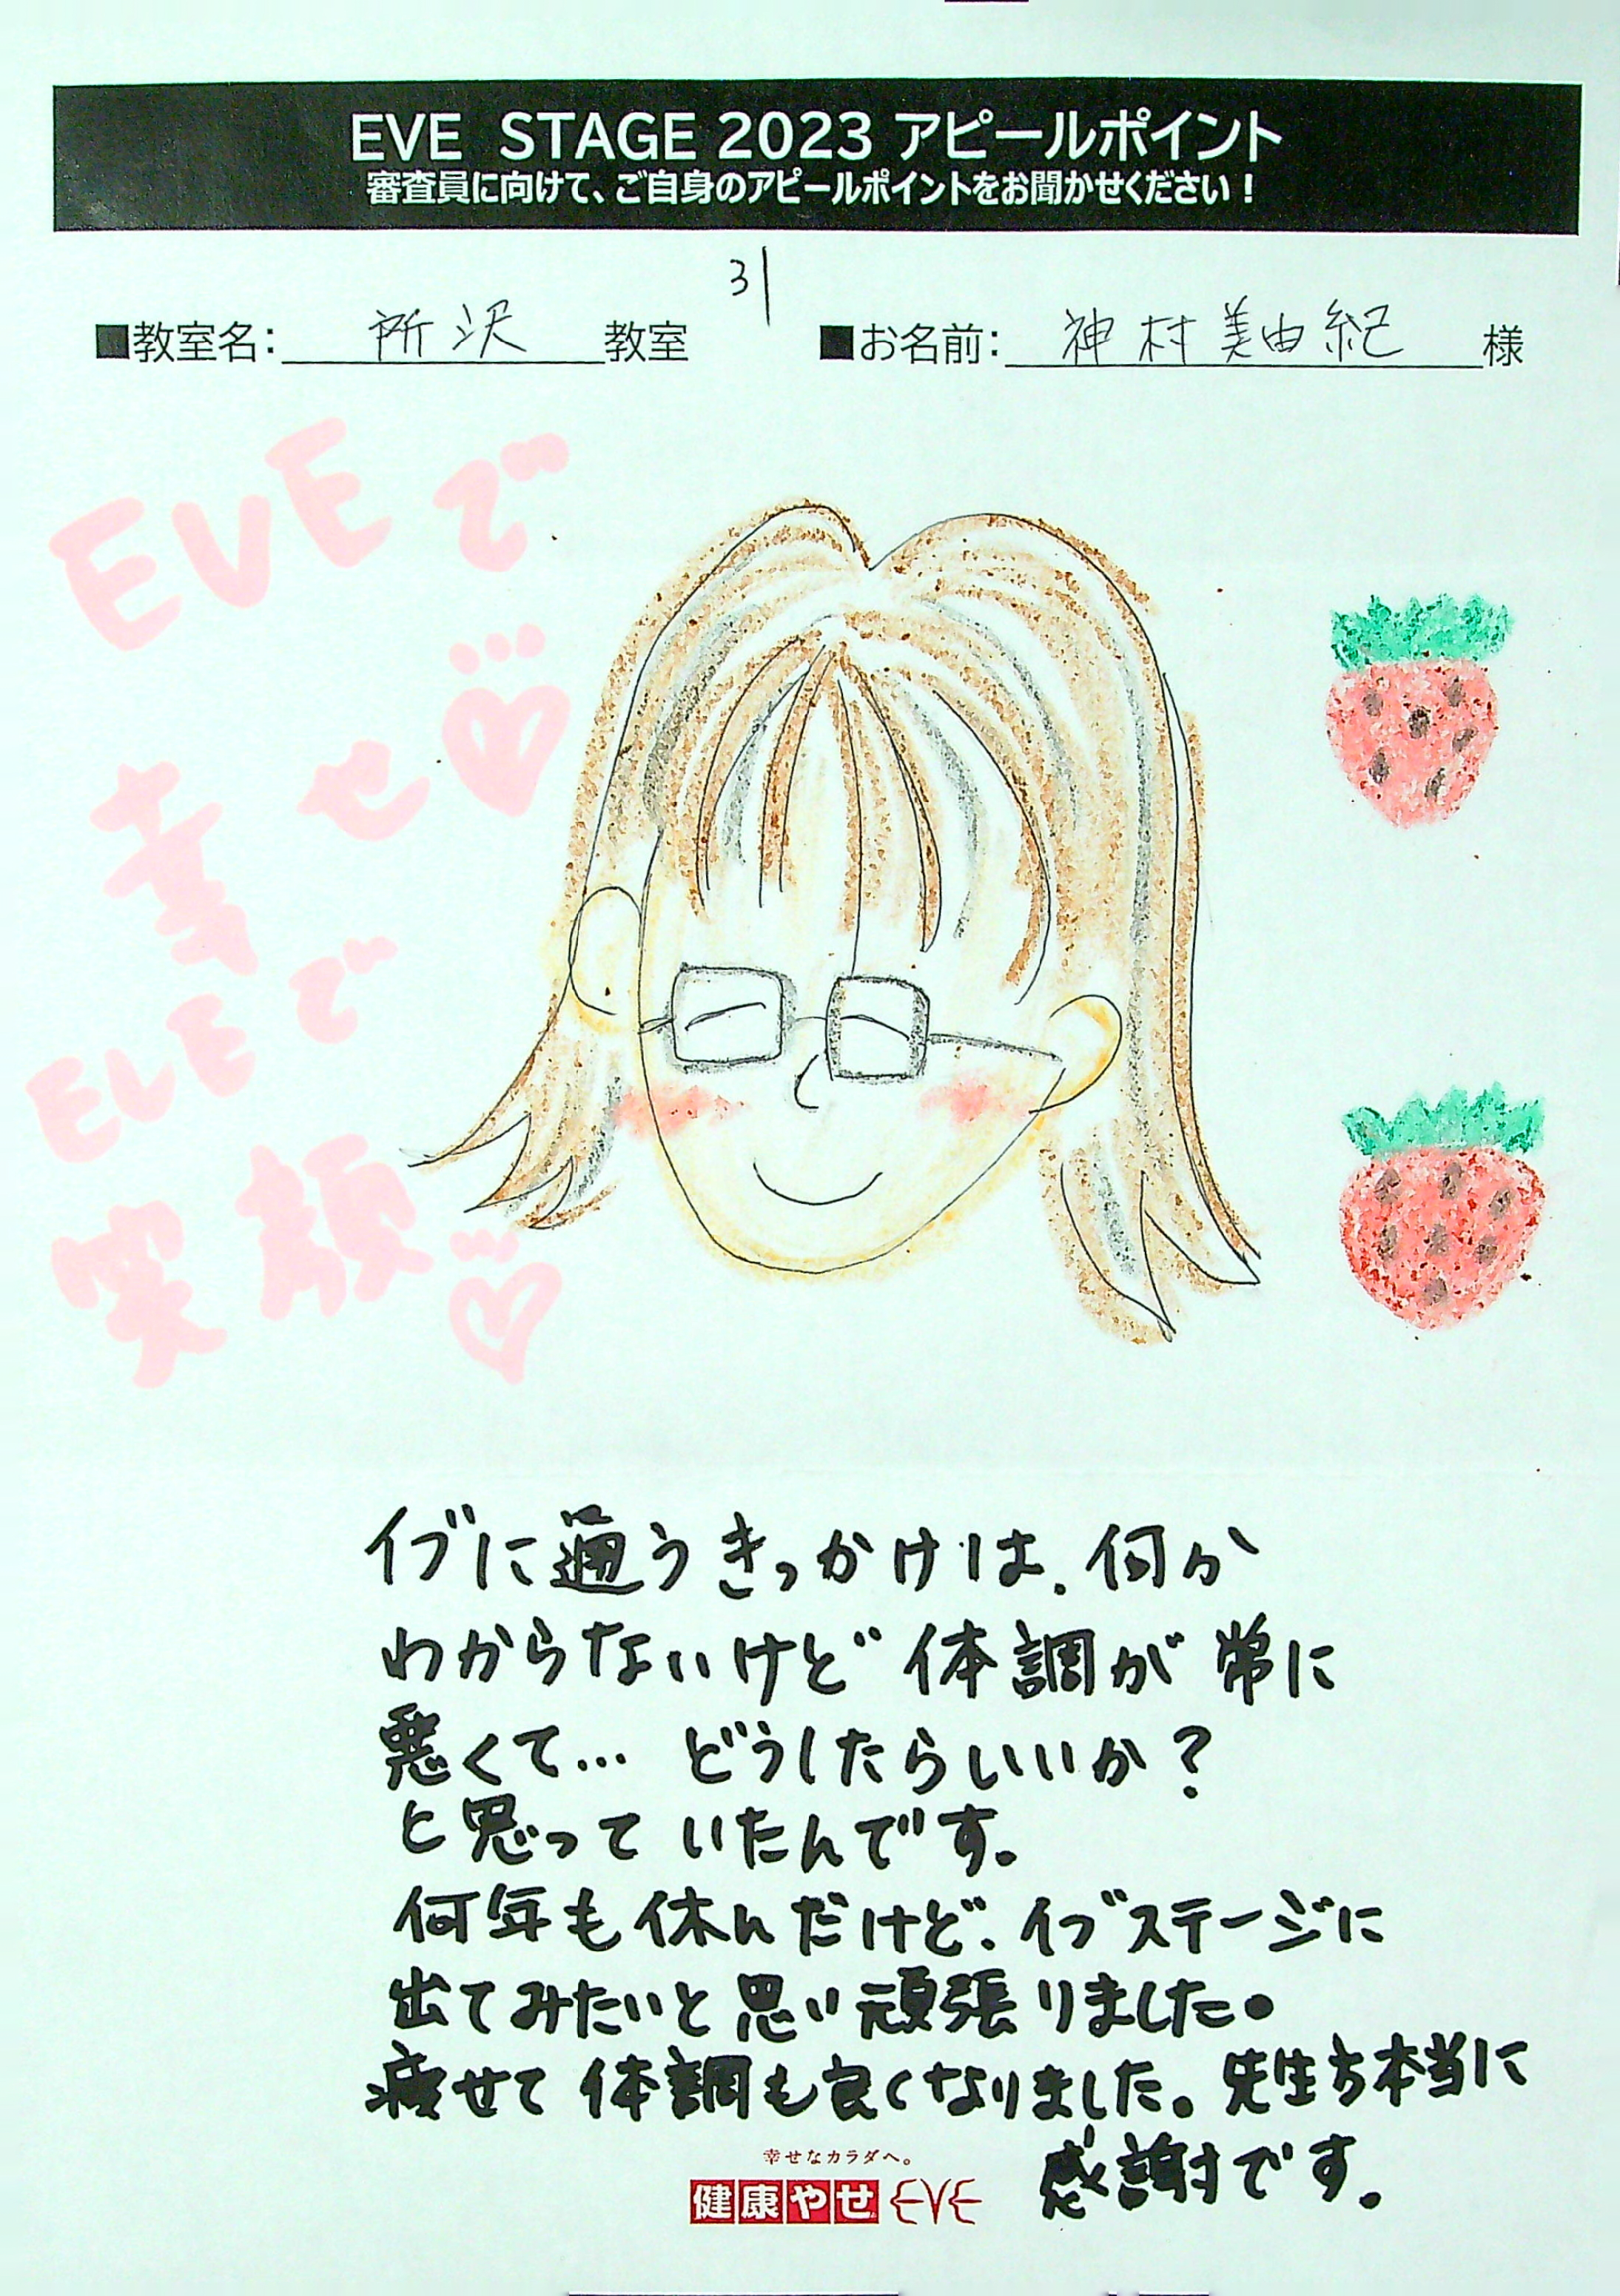 EVE STAGE 2023 アピールポイント
審査員に向けて、ご自身のアピールポイントをお聞かせください！
31
■教室名： 所沢 教室 ■お名前： 神村美由紀 様
EVEで
幸せ
EVEで
笑顔
イブに通うきっかけは、何か
わからないけど体調が常に
悪くて… どうしたらいいか？
と思っていたんです。
何年も休んだけど、イブステージに
出てみたいと思い頑張りました。
痩せて体調も良くなりました。先生方本当に
感謝です。
幸せなカラダへ。
健康やせ EVE